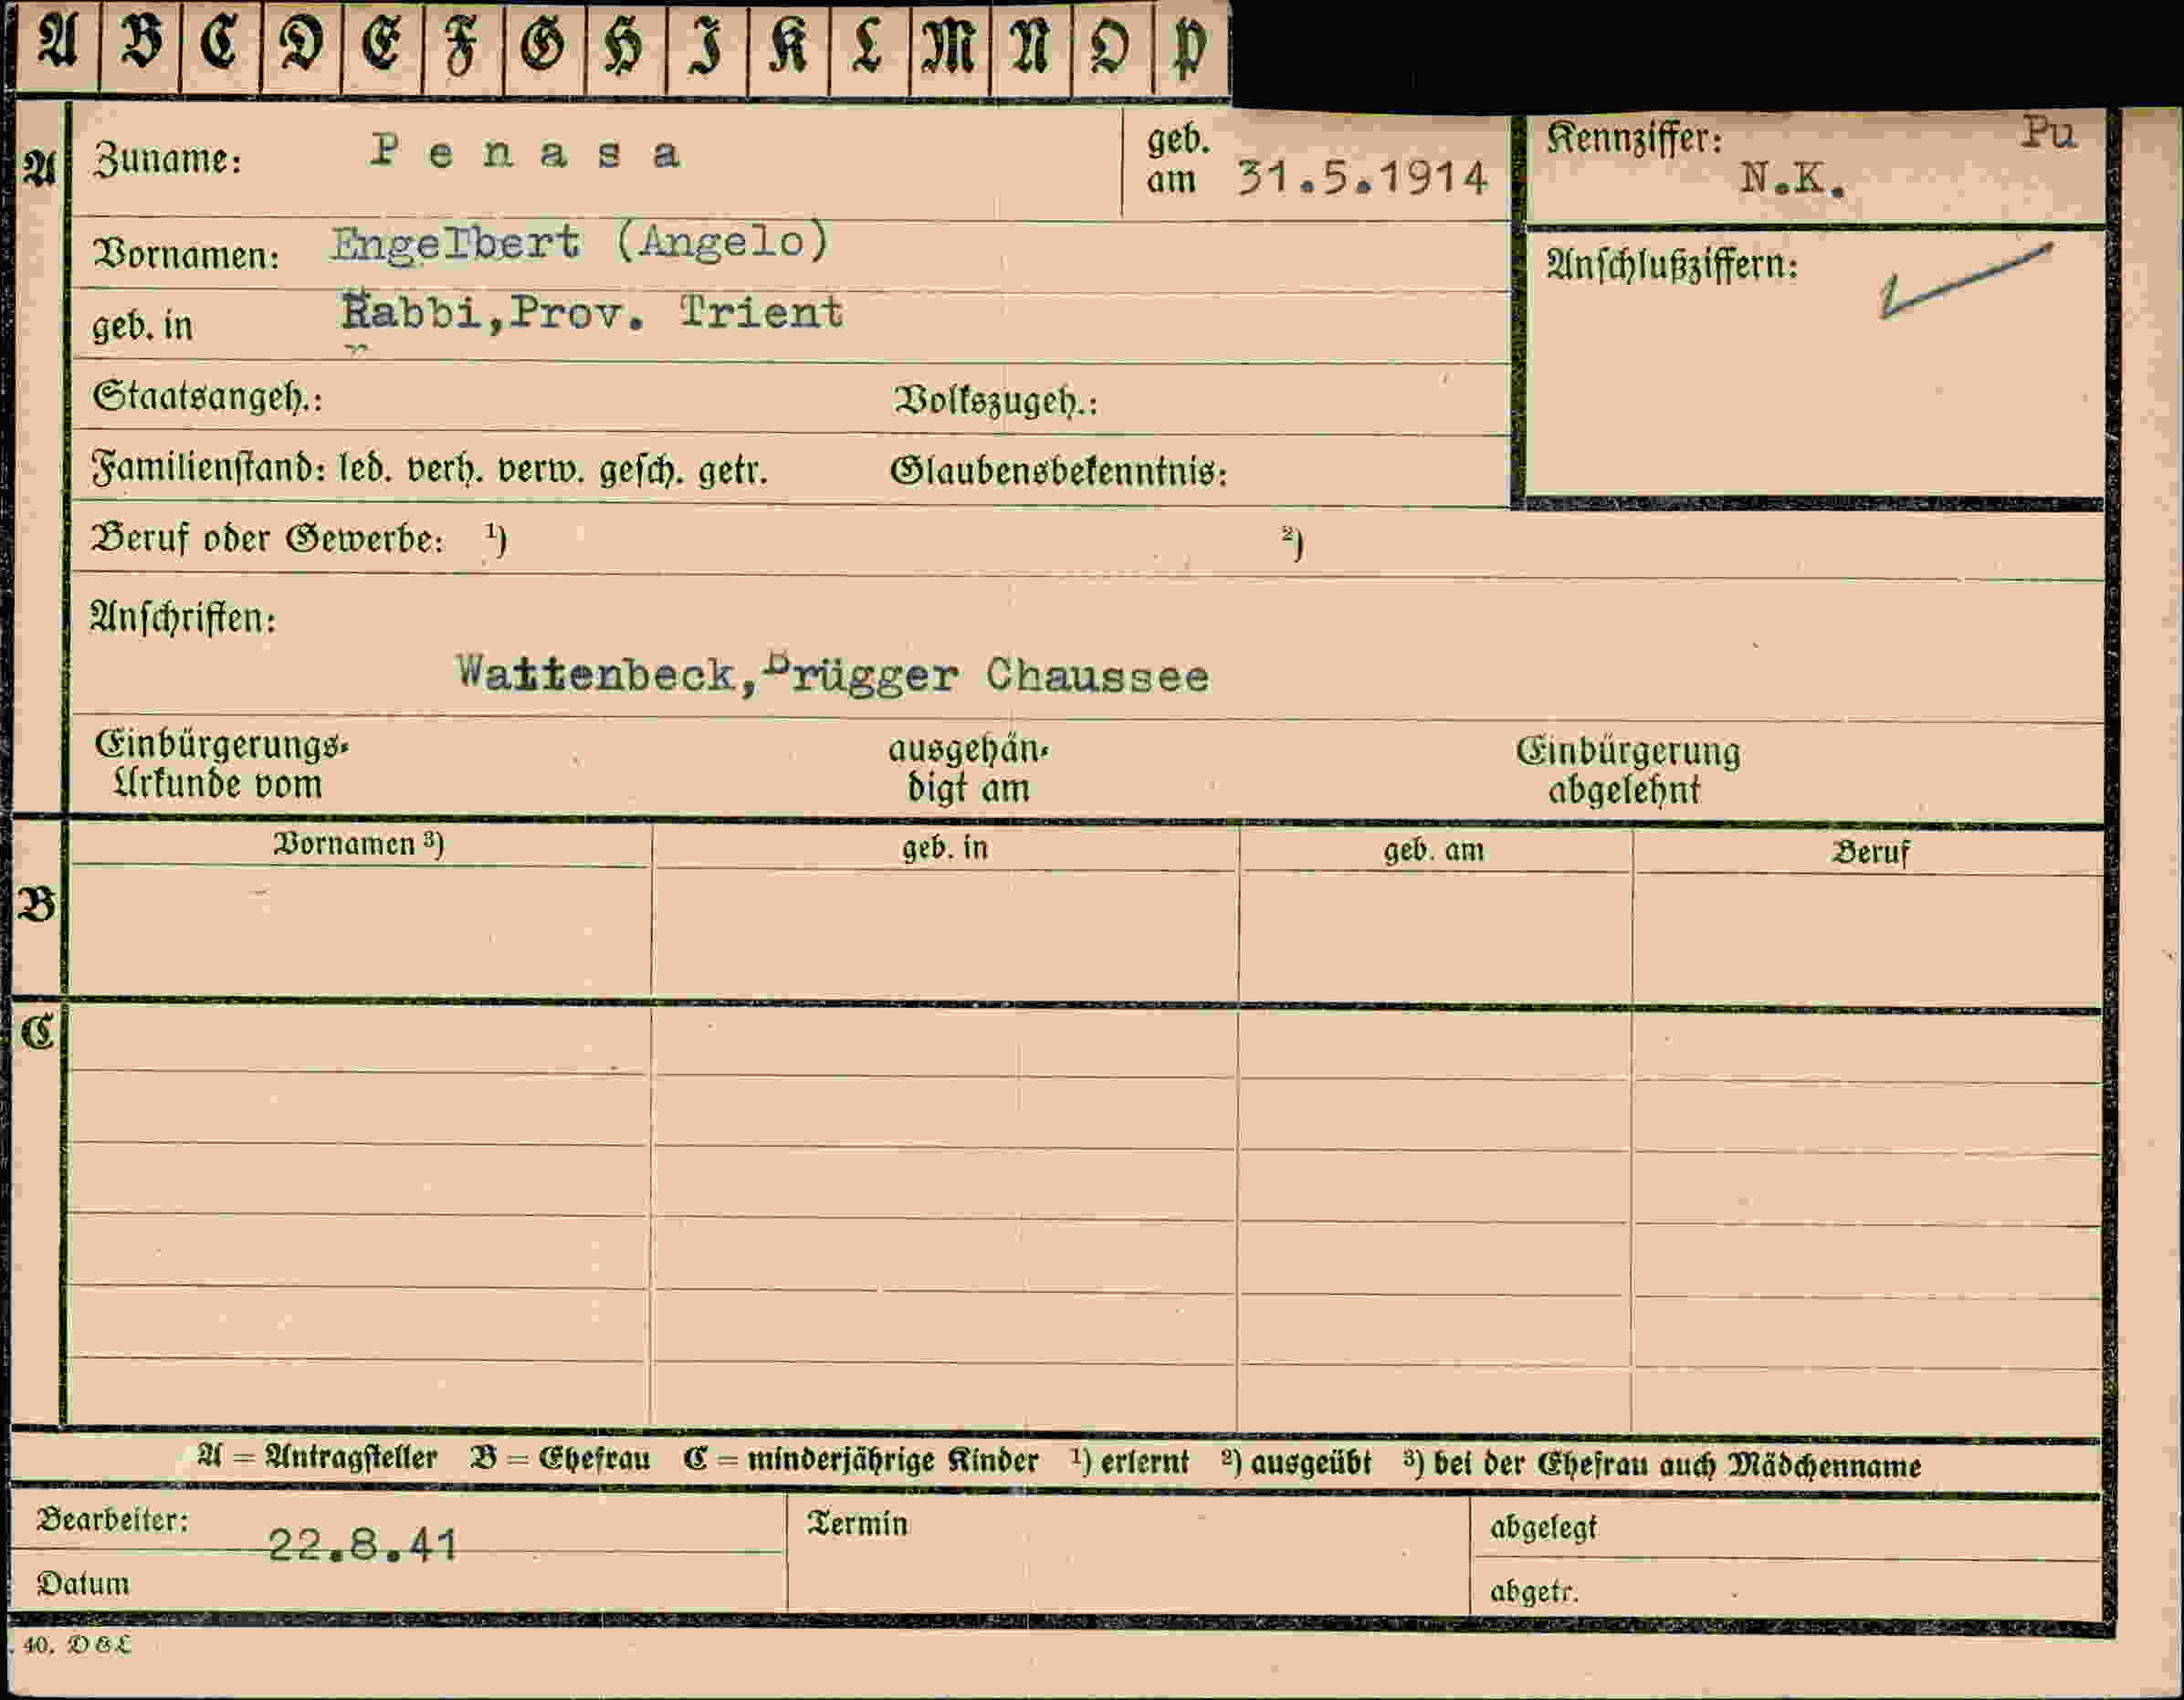 A B C D E F G H I K L M N O P
A Zuname: Penasa geb. am 31.5.1914 Kennziffer: N.K. Pu
Vornamen: Engelbert (Angelo) Anschlußziffern:
geb. in Rabbi,Prov. Trient
Staatsangeh.: Volkszugeh.:
Familienstand: led. verh. verw. gesch. getr. Glaubensbekenntnis:
Beruf oder Gewerbe: ¹) ²)
Anschriften:
Wattenbeck,Brügger Chaussee
Einbürgerungs- ausgehän- Einbürgerung
Urkunde vom digt am abgelehnt
Vornamen ³) geb. in geb. am Beruf
B
C
A = Antragsteller B = Ehefrau C = minderjährige Kinder ¹) erlernt ²) ausgeübt ³) bei der Ehefrau auch Mädchenname
Bearbeiter: 22.8.41 Termin abgelegt
Datum abgetr.
40. D&L